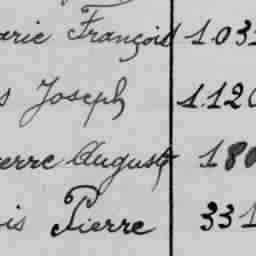 arie François 1.031
s Joseph 1.120
ierre August 180
is Pierre 331